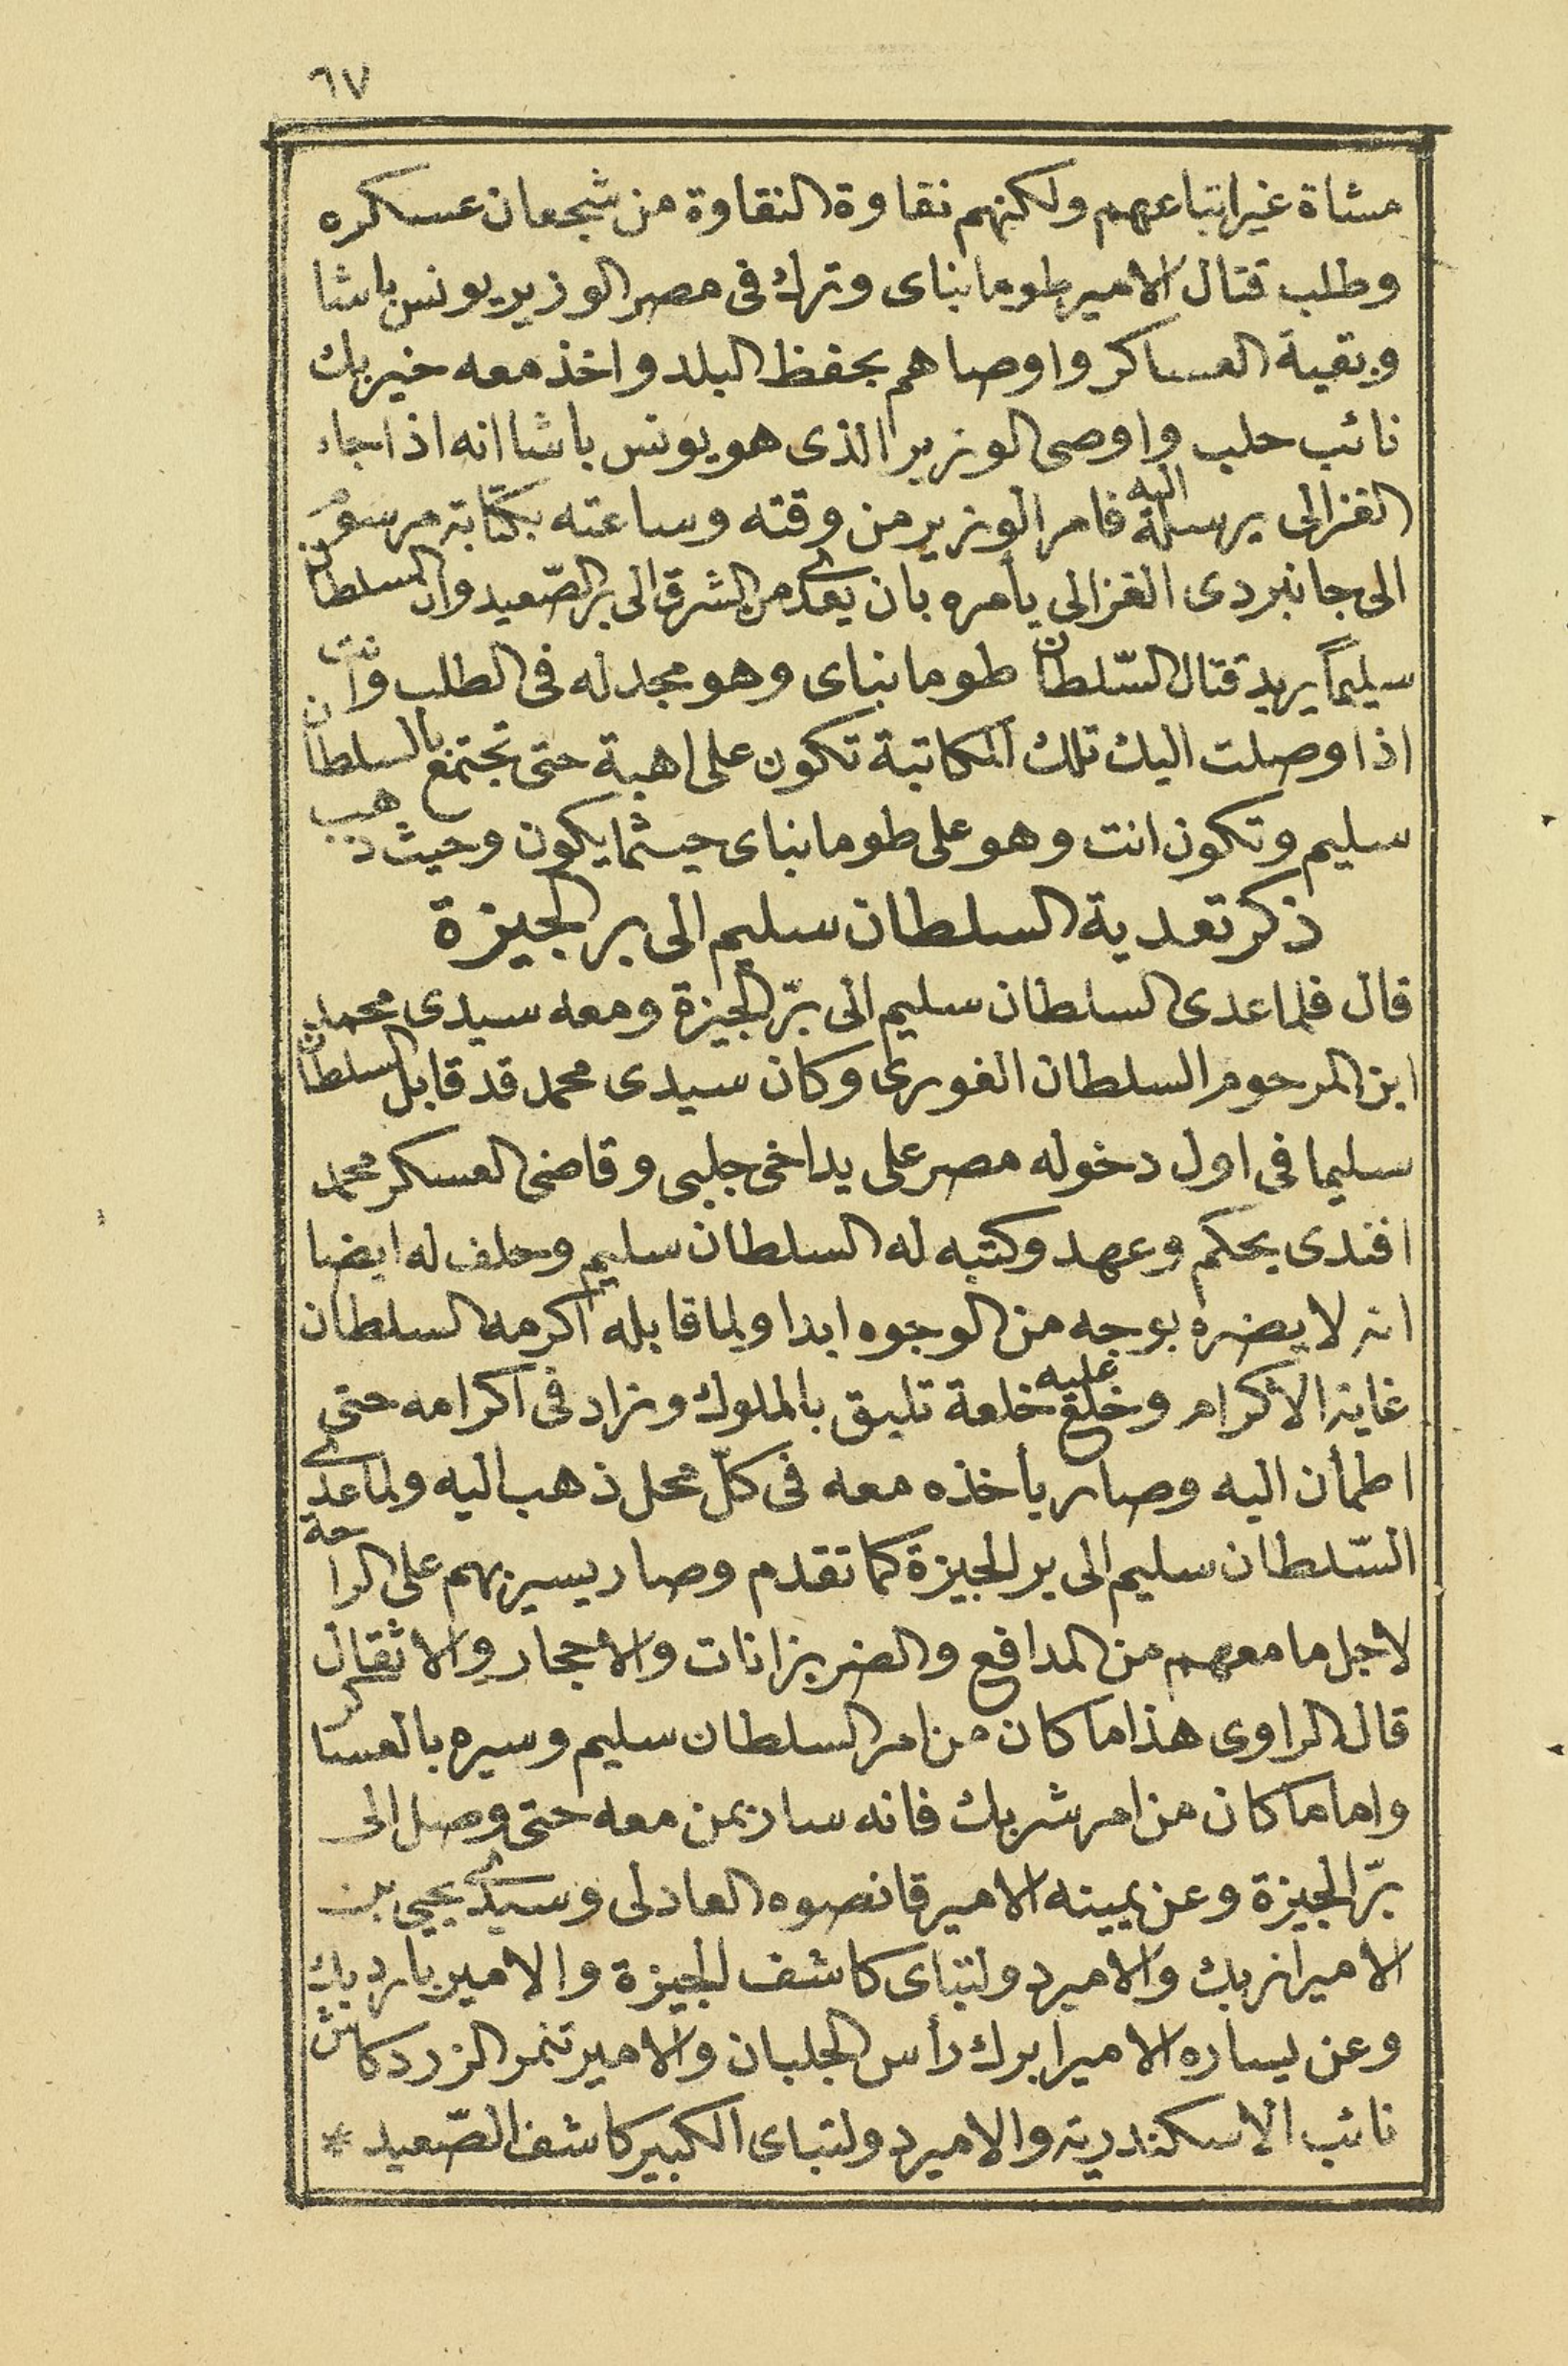 ٦٧
مشاة غير اتباعهم ولكنهم نقاوة النقاوة من شجعان عسكره
وطلب قتال الامير طومانباى وترك فى مصر الوزير يونس باشا
وبقية العساكر واوصاهم بحفظ البلد واخذ معه خير بك
نائب حلب واوصى الوزير الذى هو يونس باشا انه اذا جاء
الغزالى يرسله اليه فامر الوزير من وقته وساعته بكتابة مرسوم
الى جانبردى الغزالى يأمره بان يعدى من الشرق الى بر الصّعيد وان السلطان
سليمًا يريد قتال السّلطان طومانباى وهو مجد له فى الطلب وانت
اذا وصلت اليك تلك المكاتبة تكون على اهبة حتى تجتمع بالسلطان
سليم وتكون انت وهو على طومانباى حيثما يكون وحيث ذهب
ذكر تعدية السلطان سليم الى بر الجيزة
قال فلما عدى السلطان سليم الى برّ الجيزة ومعه سيدى محمد
ابن المرحوم السلطان الغورى وكان سيدى محمد قد قابل السلطان
سليما فى اول دخوله مصر على يد اخى جلبى وقاضى العسكر محمد
افندى بحكم وعهد وكتبه له السلطان سليم وحلف له ايضا
انه لا يضره بوجه من الوجوه ابدا ولما قابله اكرمه السلطان
غاية الاكرام وخلع عليه خلعة تليق بالملوك وزاد فى اكرامه حتى
اطمأن اليه وصار يأخذه معه فى كلّ محل ذهب اليه ولما عدى
السّلطان سليم الى بر الجيزة كما تقدم وصار يسير بهم على الراحة
لاجل ما معهم من المدافع والضربزانات والاحجار والاثقال
قال الراوى هذا ما كان من امر السلطان سليم وسيره بالعساكر
واما ما كان من امر شربك فانه سار بمن معه حتى وصل الى
برّ الجيزة وعن يمينه الامير قانصوه العادلى وسيدى يحيى بن
الامير ازبك والامير دولتباى كاشف الجيزة والامير بارد بك
وعن يساره الامير ابرك رأس الجلبان والامير تنمر الزردكاش
نائب الاسكندرية والامير دولتباى الكبير كاشف الصّعيد *